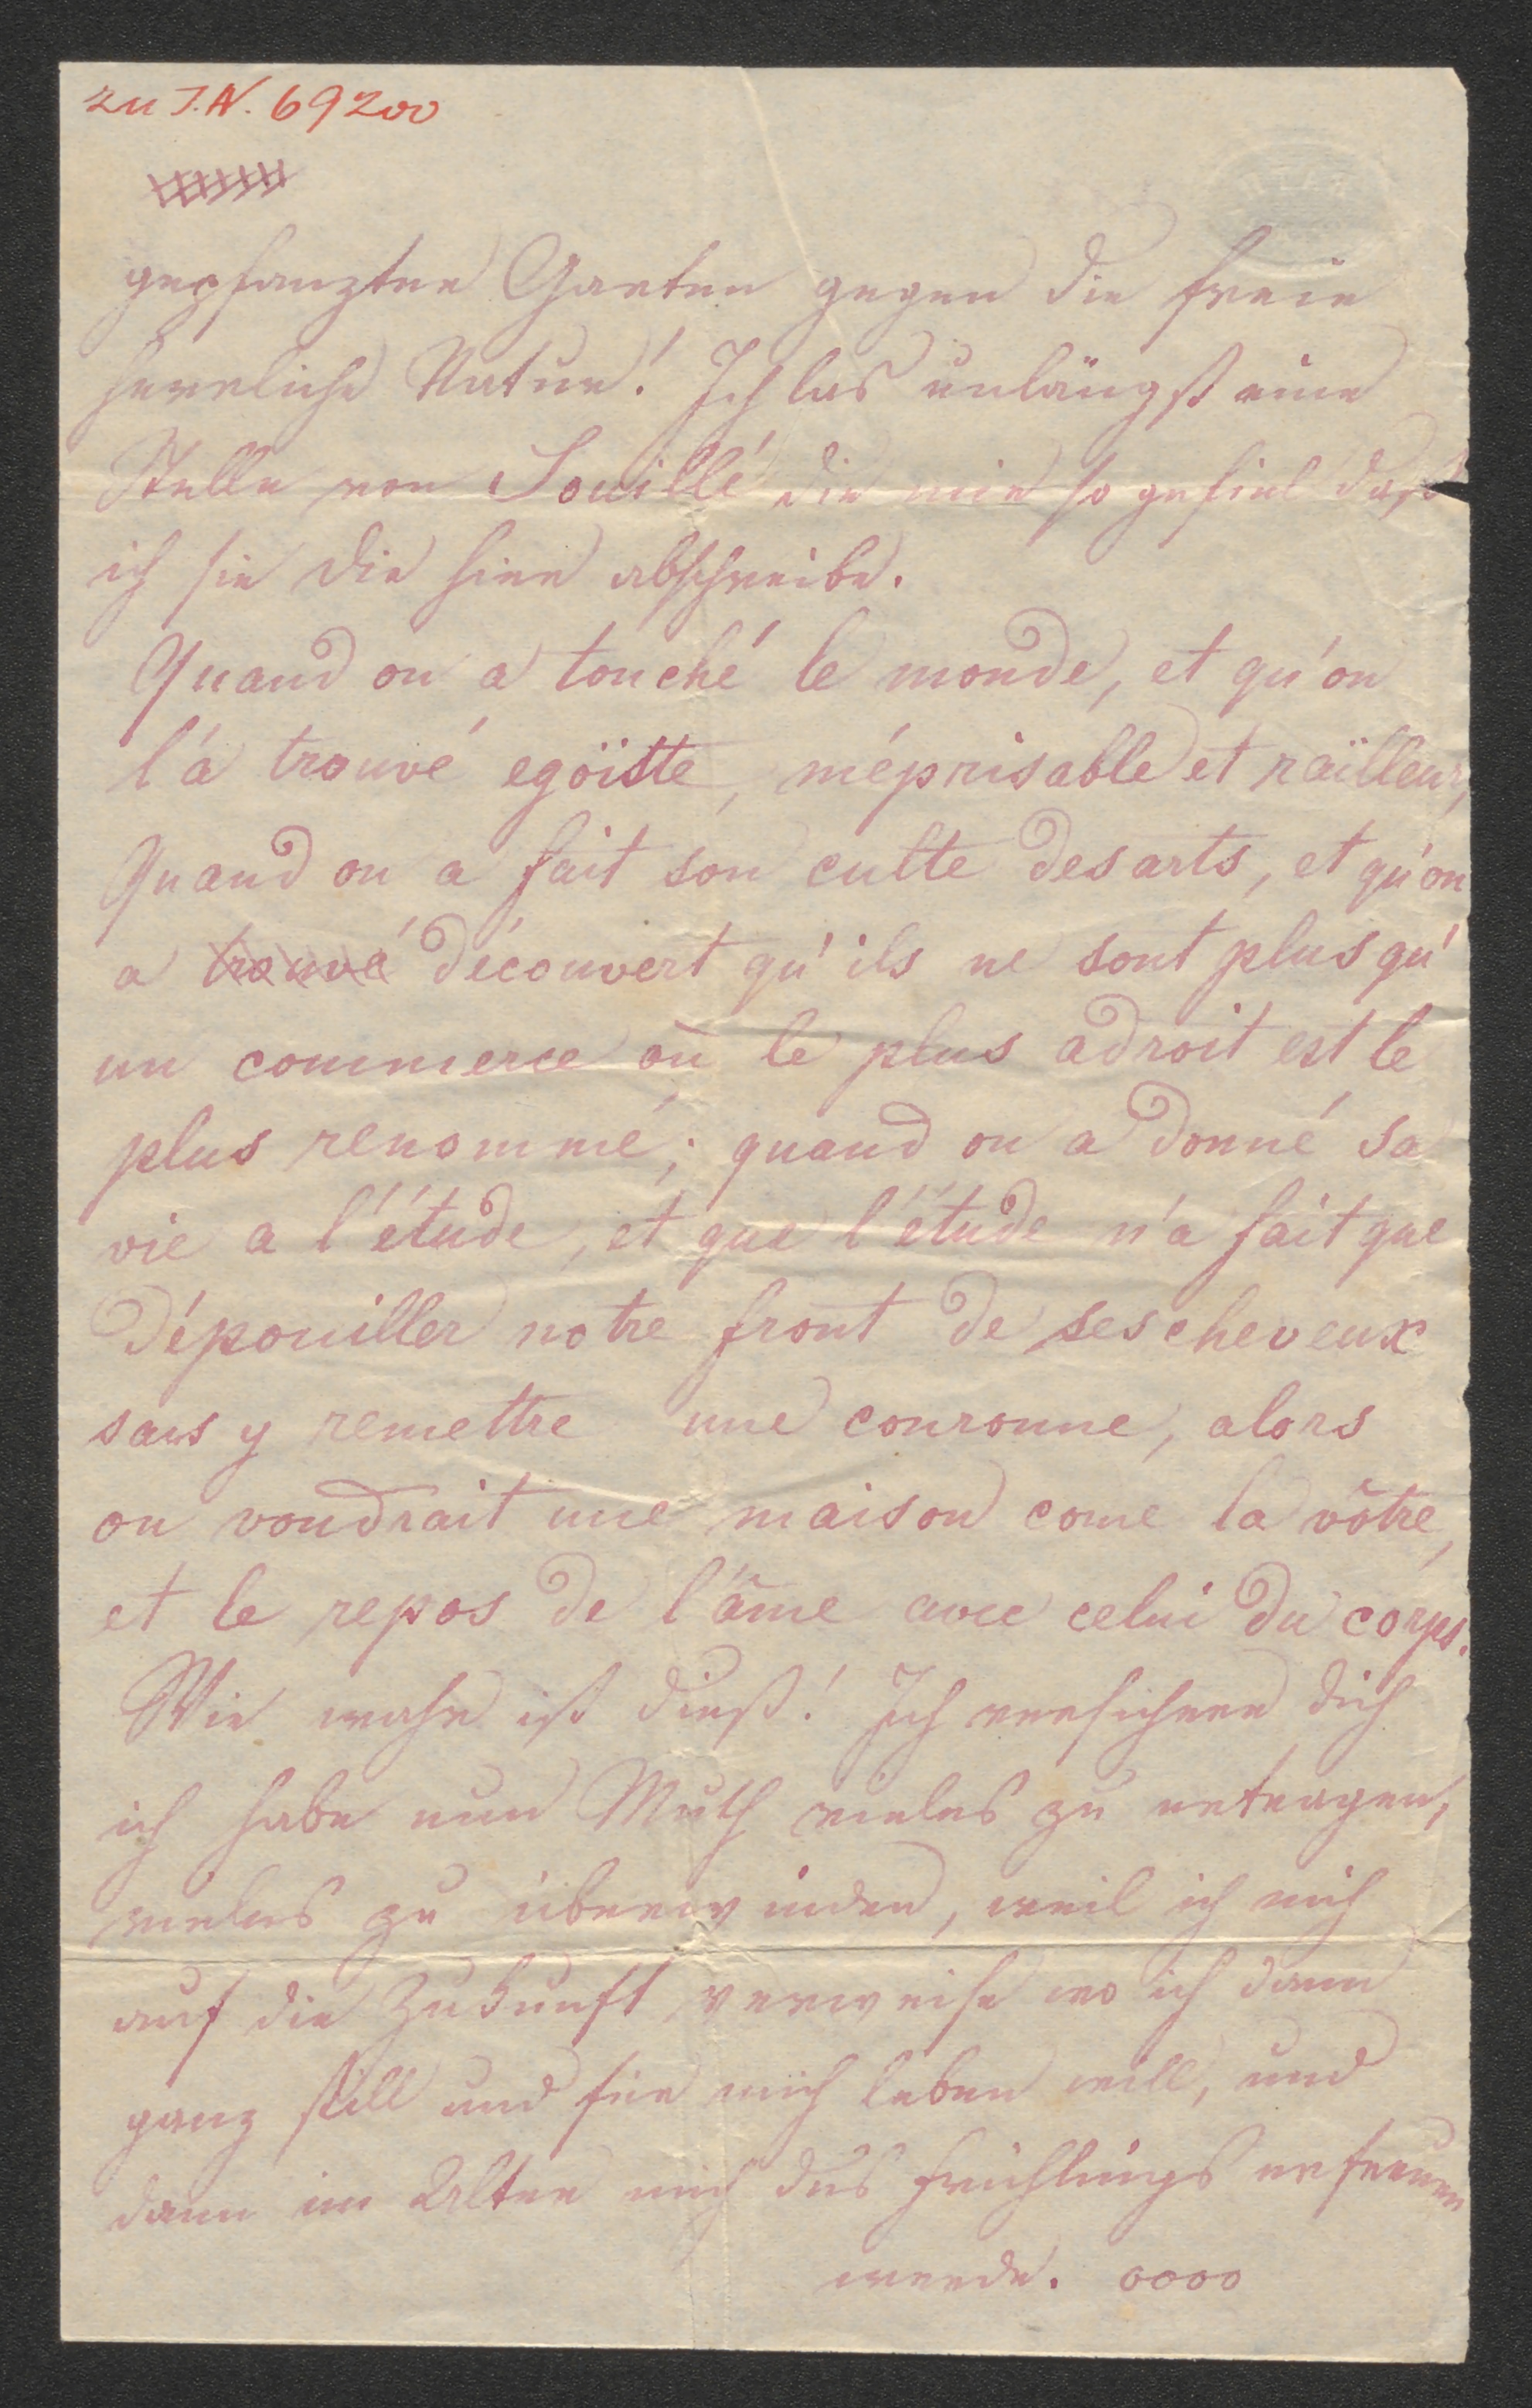 zu I.N. 69200
gepflanzten Garten gegen die freie
herrliche Natur! Ich las unlängst eine
Stelle von Souillé die mir so gefiel daß
ich sie dir hier abschreibe.
Quand on a touché le monde, et qu'on
l'a trouvé egoïste, méprisable et raïlleur,
Quand on a fait son culte des arts, et qu'on
a trouvé découvert qu'ils ne sont plus qu'
un commerce où le plus adroit est le
plus renommé; quand on a donné sa
vie a l'étude, et que l'étude n'a fait que
dépouiller notre front de ses cheveux
sans y remettre une couronne, alors
on voudrait une maison come la vôtre,
et le repos de l'âme avec celui du corps.
Wie wahr ist dieß! Ich versichere dich
ich habe nun Muth vieles zu ertragen,
vieles zu überwinden, weil ich mich
auf die Zukunft verweise wo ich dann
ganz still und für mich leben will, und
dann im Alter mich des Frühlings erfreuen
werde. oooo